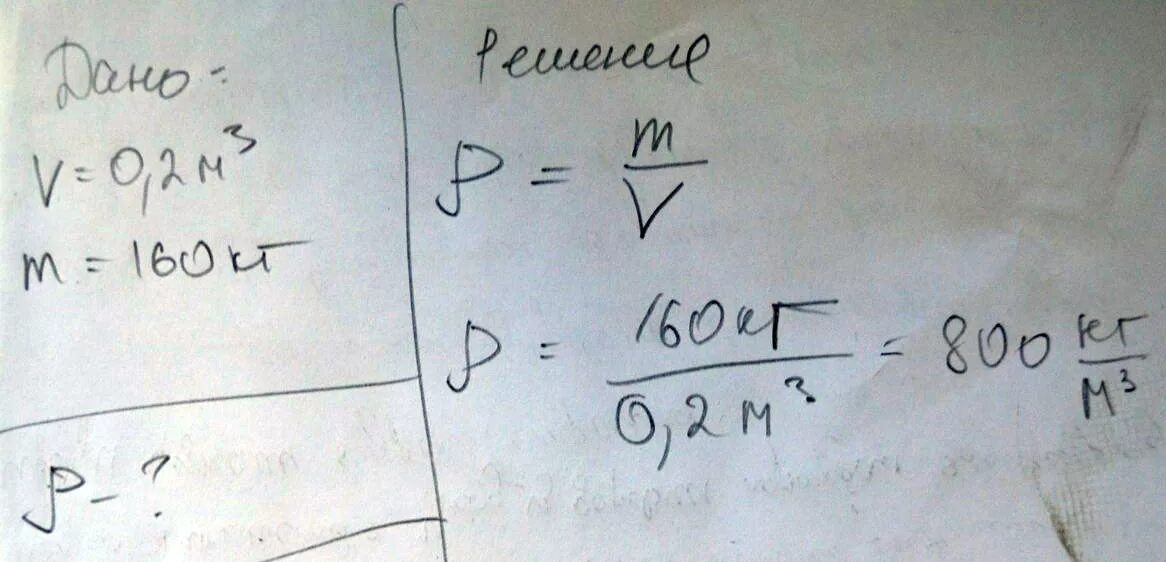 Дано:
V = 0,2 м³
m = 160 кг
ρ - ?
Решение
ρ = m/V
ρ = 160 кг / 0,2 м³ = 800 кг/м³